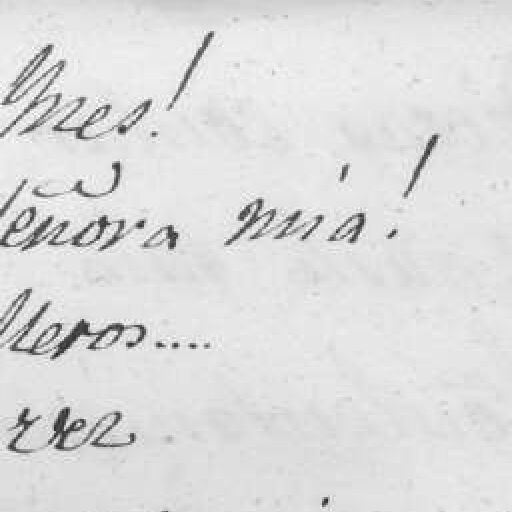 Ynes!
eñora mia!
lleros....
vez